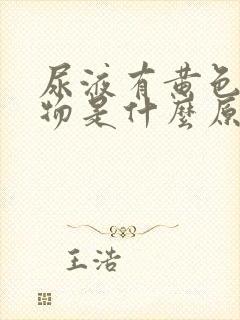 尿液有黄色
物是什麼原
王浩